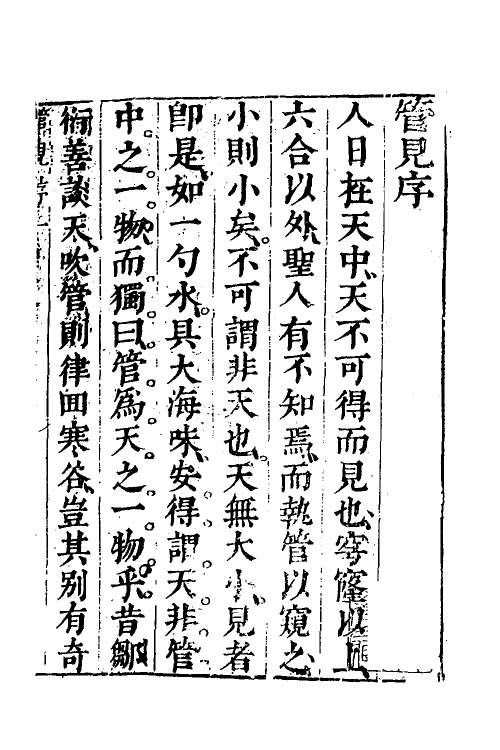 管見序
人日在天中、天不可得而見也、穹窿以上、
六合以外、聖人有不知焉、而執管以窺之、
小則小矣。不可謂非天也、天無大小、見者
卽是、如一勺水。具大海味、安得謂。天。非。管。
中。之。一。物、而。獨。曰。管。爲。天。之。一。物。乎。昔鄒
衍善談天、吹管則律回寒谷、豈其别有奇